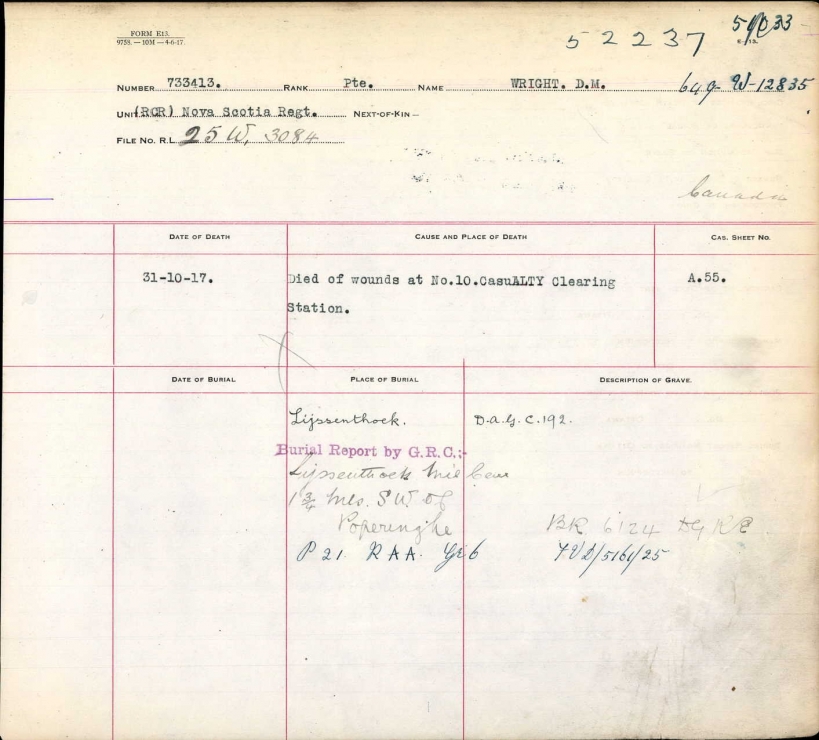 FORM E13.
9758.—10M—4-6-17.
52237
E. 13.
NUMBER 733413. RANK Pte. NAME WRIGHT. D.M. 649-W-12835
UNIT (RCR) Nova Scotia Regt. NEXT-OF-KIN—
FILE NO. R.L. 25 W, 3084
Canada
DATE OF DEATH CAUSE AND PLACE OF DEATH CAS. SHEET NO.
31-10-17. Died of wounds at No.10.CasuALTY Clearing A.55.
Station.
DATE OF BURIAL PLACE OF BURIAL DESCRIPTION OF GRAVE.
Lijssenthoek. D.a.G. C.192.
Burial Report by G.R.C.;-
Lijssenthoek Mil Cem
1¾ Mls. S.W. of
Poperinghe BR 6124
P 21. R AA. Gr 6